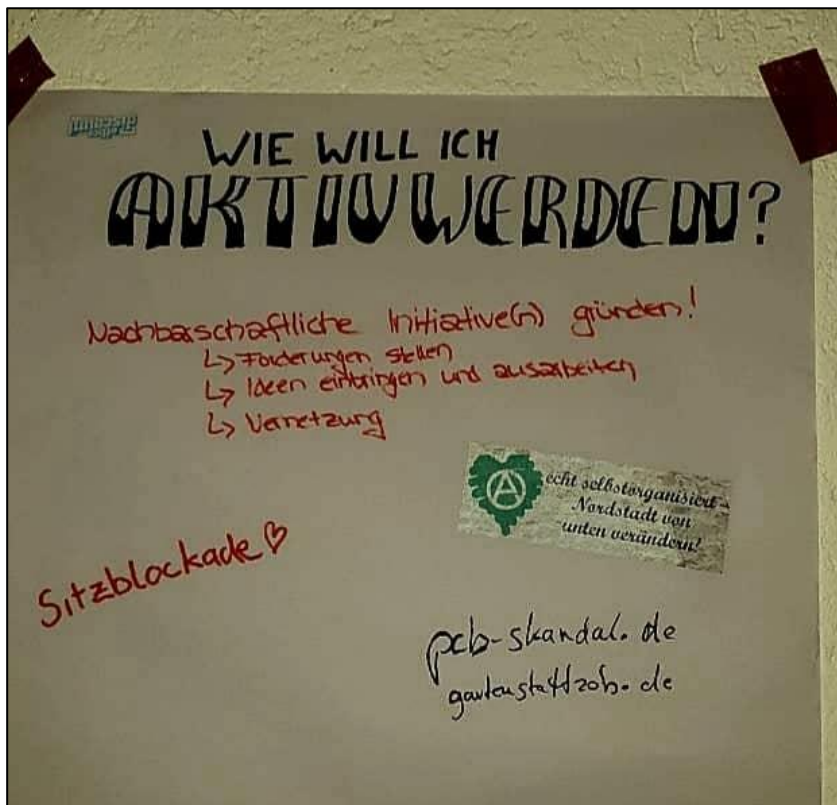 WIE WILL ICH
AKTIV WERDEN?
Nachbarschaftliche Initiative(n) gründen!
↳ Forderungen stellen
↳ Ideen einbringen und ausarbeiten
↳ Vernetzung
echt selbstorganisiert –
Nordstadt von
unten verändern!
Sitzblockade ♡
pcb-skandal.de
gartenstattzob.de